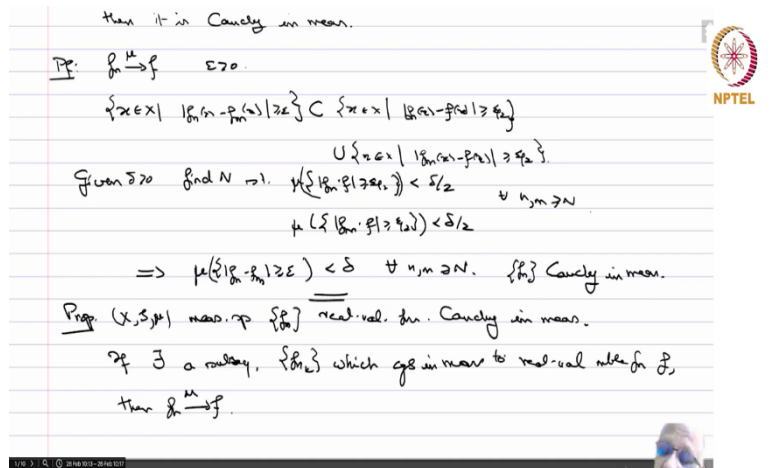 then it is Cauchy in meas.
Pf: fₙ →^μ f   ε>0.
{x∈X | |fₙ(x) - fₘ(x)| ≥ ε} ⊂ {x∈X | |fₙ(x) - f(x)| ≥ ε/2}
∪ {x∈X | |fₘ(x) - f(x)| ≥ ε/2}.
Given δ>0 find N →1. μ({|fₙ-f| ≥ ε/2}) < δ/2   ∀ n,m ≥ N
μ({|fₘ-f| ≥ ε/2}) < δ/2
⟹ μ({|fₙ-fₘ| ≥ ε}) < δ   ∀ n,m ≥ N.   {fₙ} Cauchy in meas.
Prop. (X,S,μ) meas. sp {fₙ} real-val. fn. Cauchy in meas.
If ∃ a subseq. {fₙₖ} which cgs in meas to real-val mble fn f,
then fₙ →^μ f.
NPTEL
1/10
28 Feb 10:13 - 28 Feb 10:17